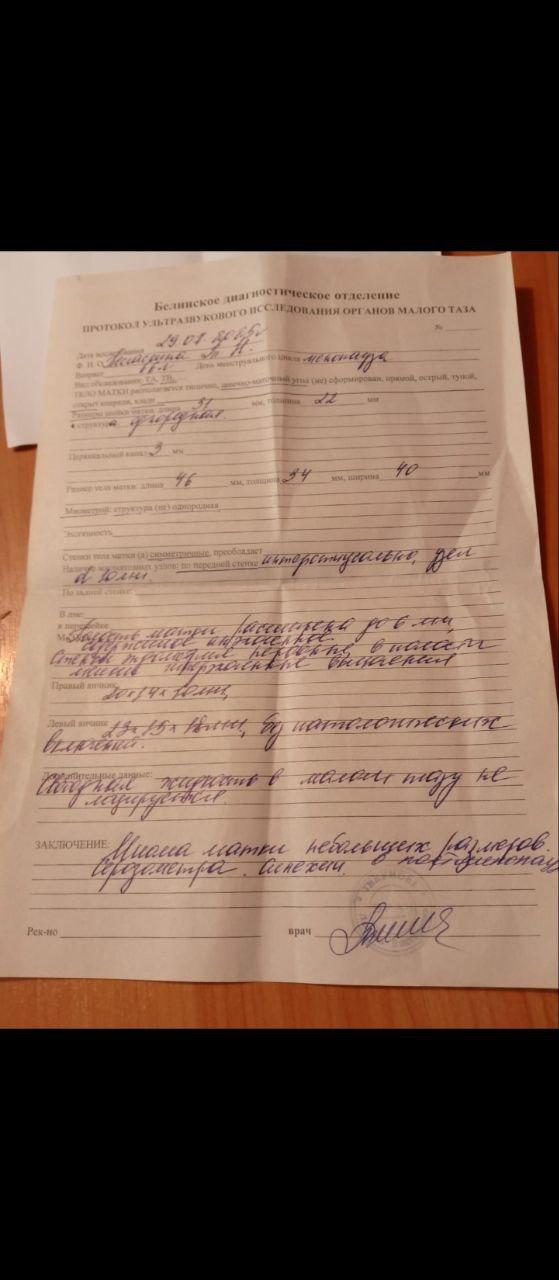 Белинское диагностическое отделение
ПРОТОКОЛ УЛЬТРАЗВУКОВОГО ИССЛЕДОВАНИЯ ОРГАНОВ МАЛОГО ТАЗА
№
Дата исследования 29.07.2025г
Ф. И. О. Т. Н.
Возраст День менструального цикла менопауза
Вид обследования: ТА, ТВ,
ТЕЛО МАТКИ располагается типично, шеечно-маточный угол (не) сформирован, прямой, острый, тупой,
открыт кпереди, кзади
Размеры шейки матки: длина 31 мм, толщина 22 мм
структура однородная.
Цервикальный канал 3 мм
Размер тела матки: длина 46 мм, толщина 34 мм, ширина 40 мм
Миометрий: структура (не) однородная
Эхогенность
Стенки тела матки (а) симметричные, преобладает
Наличие миоматозных узлов: по передней стенке интерстициально, узел
d 10мм.
По задней стенке:
В дне:
в перешейке
Полость матки расширена до 6 мм
содержимое
Стенки эндометрия неровные, в полости
линейные включения
Правый яичник 20х14х10мм,
Левый яичник 23х15х18мм, без патологических
включений.
Дополнительные данные:
Свободная жидкость в малом тазу не
лоцируется.
ЗАКЛЮЧЕНИЕ: Миома матки небольших размеров.
Серозометра. Синехии. в
Рек-но врач